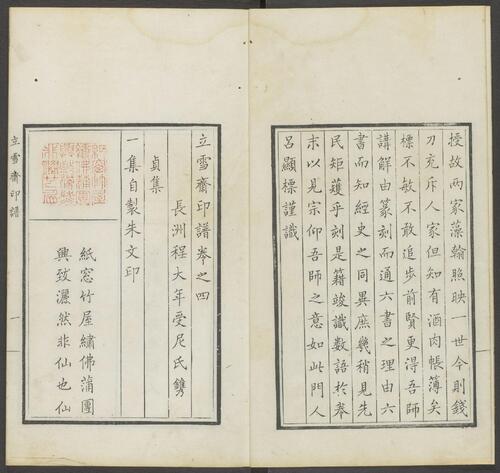 授故兩家藻翰照映一世今則錢
刀充斥人家但知有酒肉帳薄矣
標不敏不敢追步前賢更得吾師
講解由篆刻而通六書之理由六
書而知經史之同異庶幾稍見先
民矩矱乎刻是籍竣識數語於卷
末以見宗仰吾師之意如此門人
呂顯標謹識
立雪齋印譜卷之四
長洲程大年受尼氏鐫
貞集
一集自製朱文印
紙窓竹屋繡佛蒲團
興致灑然非仙也仙
立雪齋印譜
一